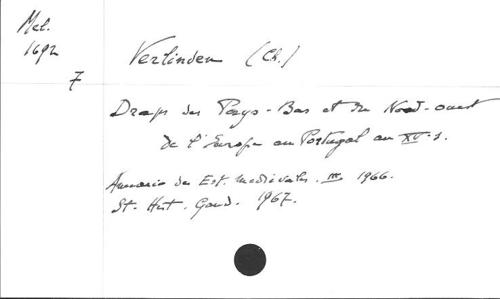 Mel.
1692
7
Verlinden (Ch.)
Draps des Pays-Bas et du Nord-ouest
de l'Europe au Portugal au XVe s.
Annuario de Est. Medievales. III 1966.
St. Hist. Gand. 1967.